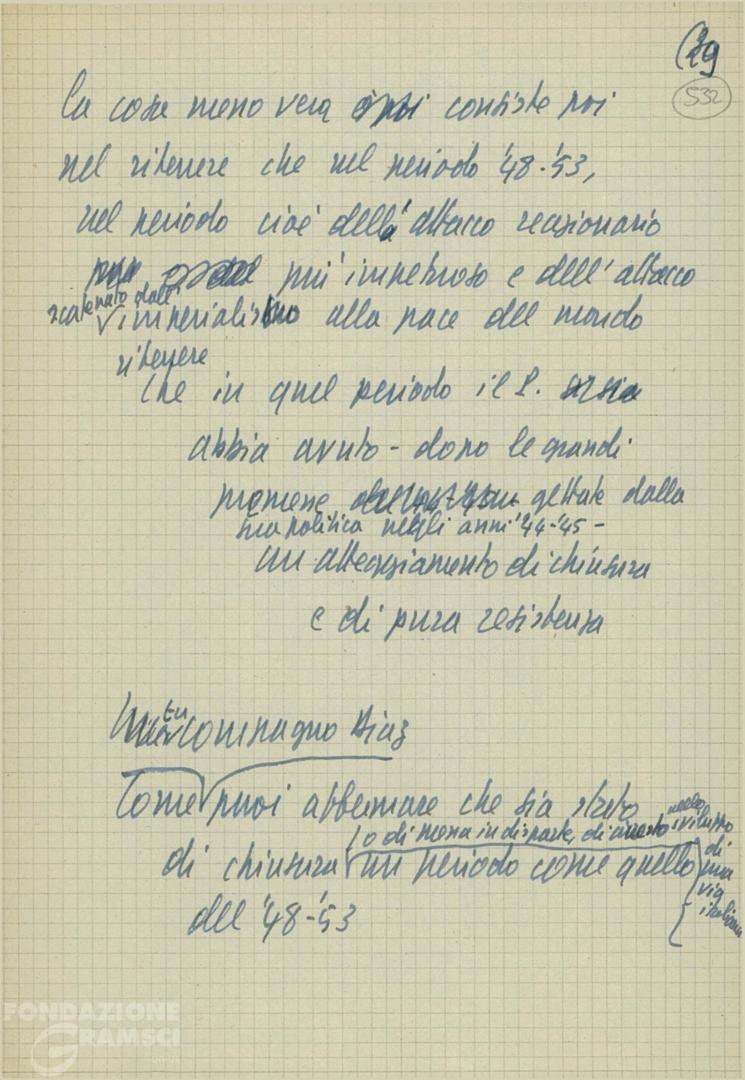 29
532
la cosa meno vera poi consiste poi
nel ritenere che nel periodo '48-'53,
nel periodo cioè dell'attacco reazionario
più impetuoso e dell'attacco
scatenato dall'
imperialismo alla pace del mondo
ritenere
che in quel periodo il P. sia
abbia avuto - dopo le grandi
promesse gettate dalla
sua politica negli anni '44-'45 -
un atteggiamento di chiusura
e di pura resistenza
tu
compagno Diaz
Come puoi affermare che sia stato
o di messa in disparte, di nello sviluppo
di chiusura un periodo come quello di una
via
del '48-'53 italiana
FONDAZIONE
GRAMSCI